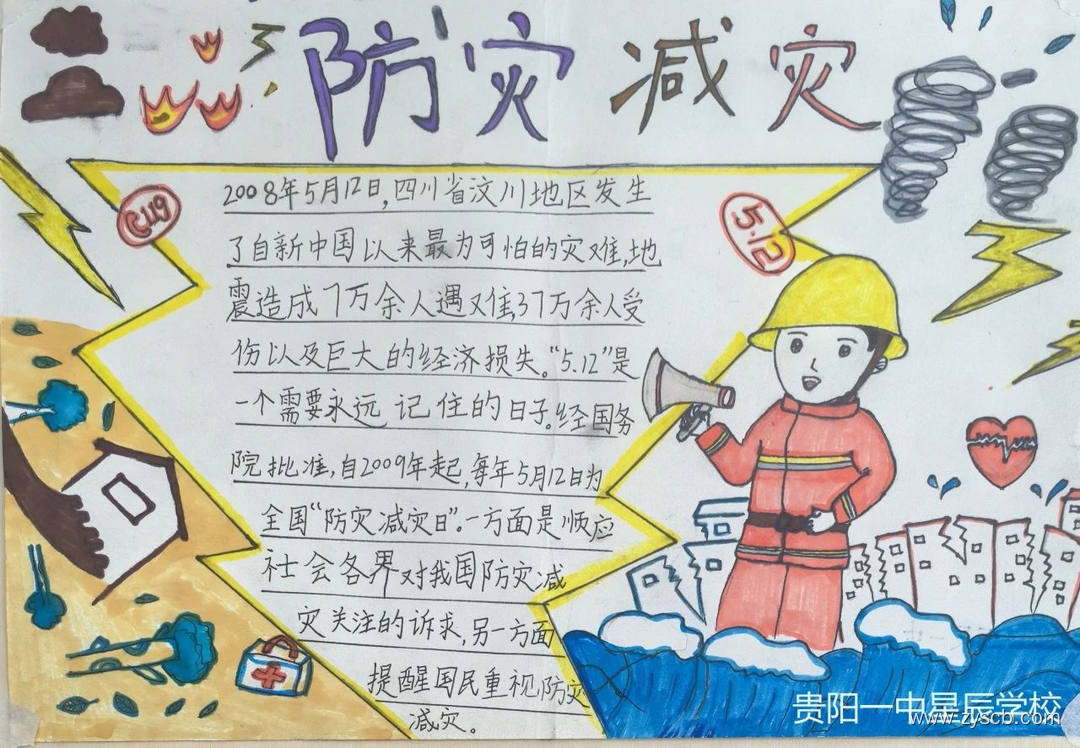 防灾 减灾
5.119
5.12
2008年5月12日,四川省汶川地区发生
了自新中国以来最为可怕的灾难,地
震造成7万余人遇难,37万余人受
伤以及巨大的经济损失。“5.12”是
一个需要永远记住的日子。经国务
院批准,自2009年起,每年5月12日为
全国“防灾减灾日”。一方面是顺应
社会各界对我国防灾减
灾关注的诉求,另一方面
提醒国民重视防灾
减灾。
贵阳一中星辰学校
www.zyscb.com